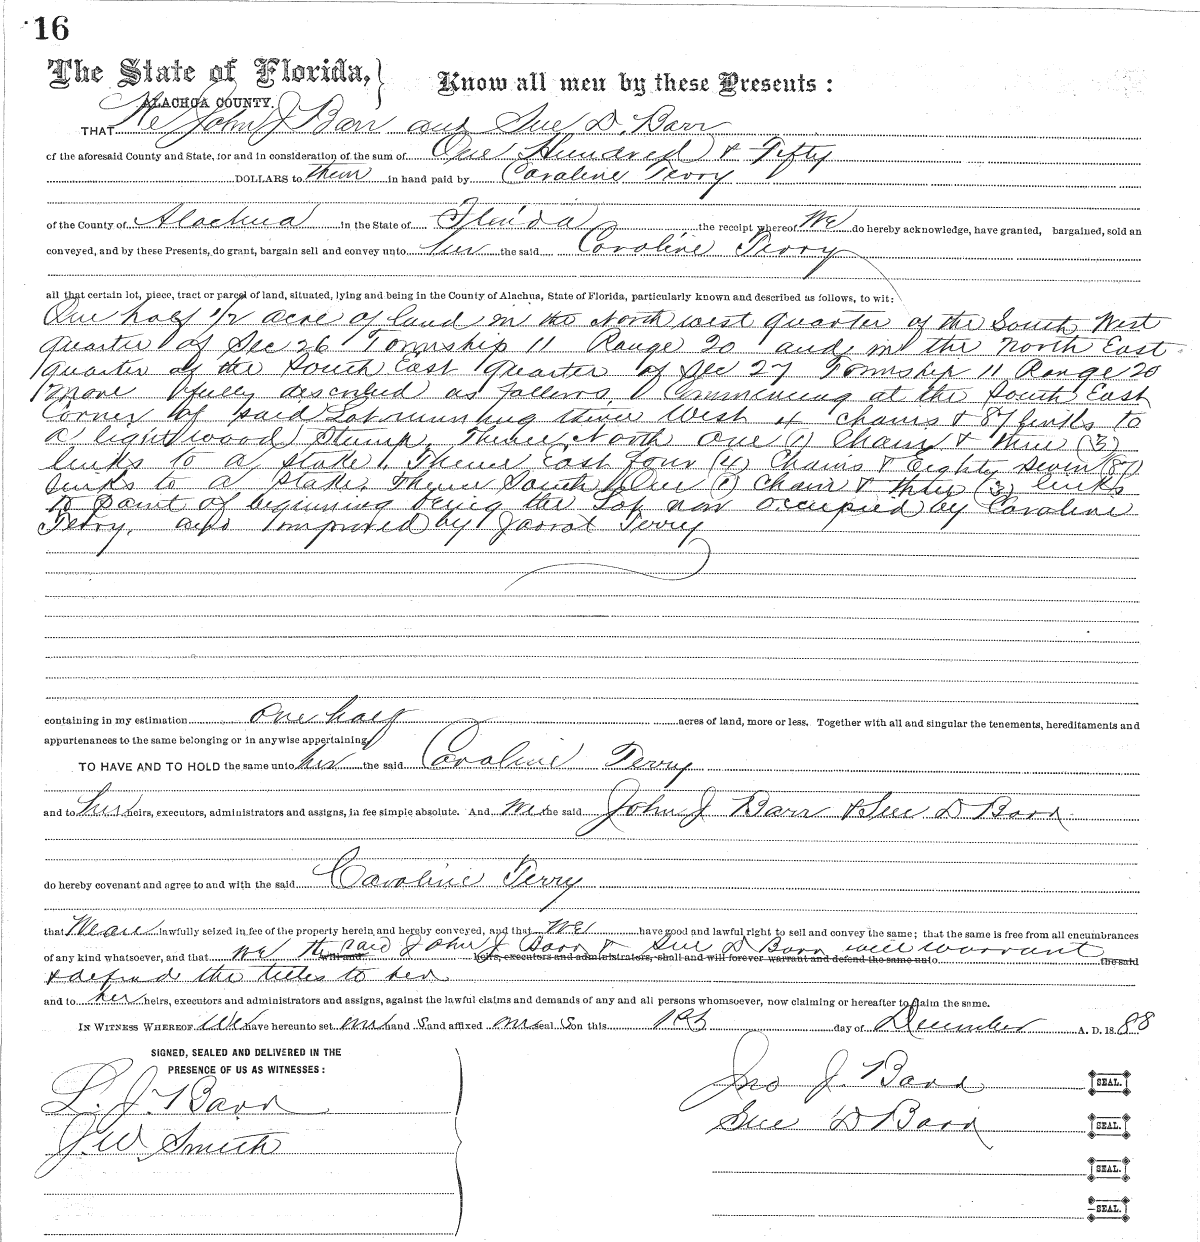 16
The State of Florida, Know all men by these Presents:
ALACHUA COUNTY.
THAT We John J Barr and Sue D. Barr
of the aforesaid County and State, for and in consideration of the sum of One Hundred & Fifty
DOLLARS to them in hand paid by Caroline Terry
of the County of Alachua in the State of Florida the receipt whereof We do hereby acknowledge, have granted, bargained, sold an
conveyed, and by these Presents, do grant, bargain sell and convey unto her the said Caroline Terry
all that certain lot, piece, tract or parcel of land, situated, lying and being in the County of Alachua, State of Florida, particularly known and described as follows, to wit:
One half 1/2 acre of land in the North west quarter of the South West
quarter of Sec 26 Township 11 Range 20 and in the North East
quarter of the South East quarter of Sec 27 Township 11 Range 20
more fully described as follows, Commencing at the South East
Corner of said Lot running thence West 4 chains & 87 links to
a lightwood Stump, Thence North One (1) Chain & three (3)
links to a stake, Thence East four (4) Chains & Eighty seven (87)
links to a stake, Thence South One (1) Chain & three (3) links
to point of beginning being the Lot now occupied by Caroline
Terry, and improved by Jarrot Terry
containing in my estimation one half acres of land, more or less, Together with all and singular the tenements, hereditaments and
appurtenances to the same belonging or in anywise appertaining
TO HAVE AND TO HOLD the same unto her the said Caroline Terry
and to her heirs, executors, administrators and assigns, in fee simple absolute. And we the said John J Barr & Sue D Barr
do hereby covenant and agree to and with the said Caroline Terry
that We are lawfully seized in fee of the property herein and hereby conveyed, and that we have good and lawful right to sell and convey the same; that the same is free from all encumbrances
of any kind whatsoever, and that we the said John J Barr & Sue D Barr will warrant heirs, executors and administrators, shall and will forever warrant and defend the same unto the said
& defend the titles to her
and to her heirs, executors and administrators and assigns, against the lawful claims and demands of any and all persons whomsoever, now claiming or hereafter to claim the same.
IN WITNESS WHEREOF We have hereunto set our hand s and affixed our seal s on this 1st day of December A. D. 18 88
SIGNED, SEALED AND DELIVERED IN THE
PRESENCE OF US AS WITNESSES:
L. J. Barr
J. W. Smith
Jno J. Barr SEAL.
Sue D Barr SEAL.
SEAL.
SEAL.